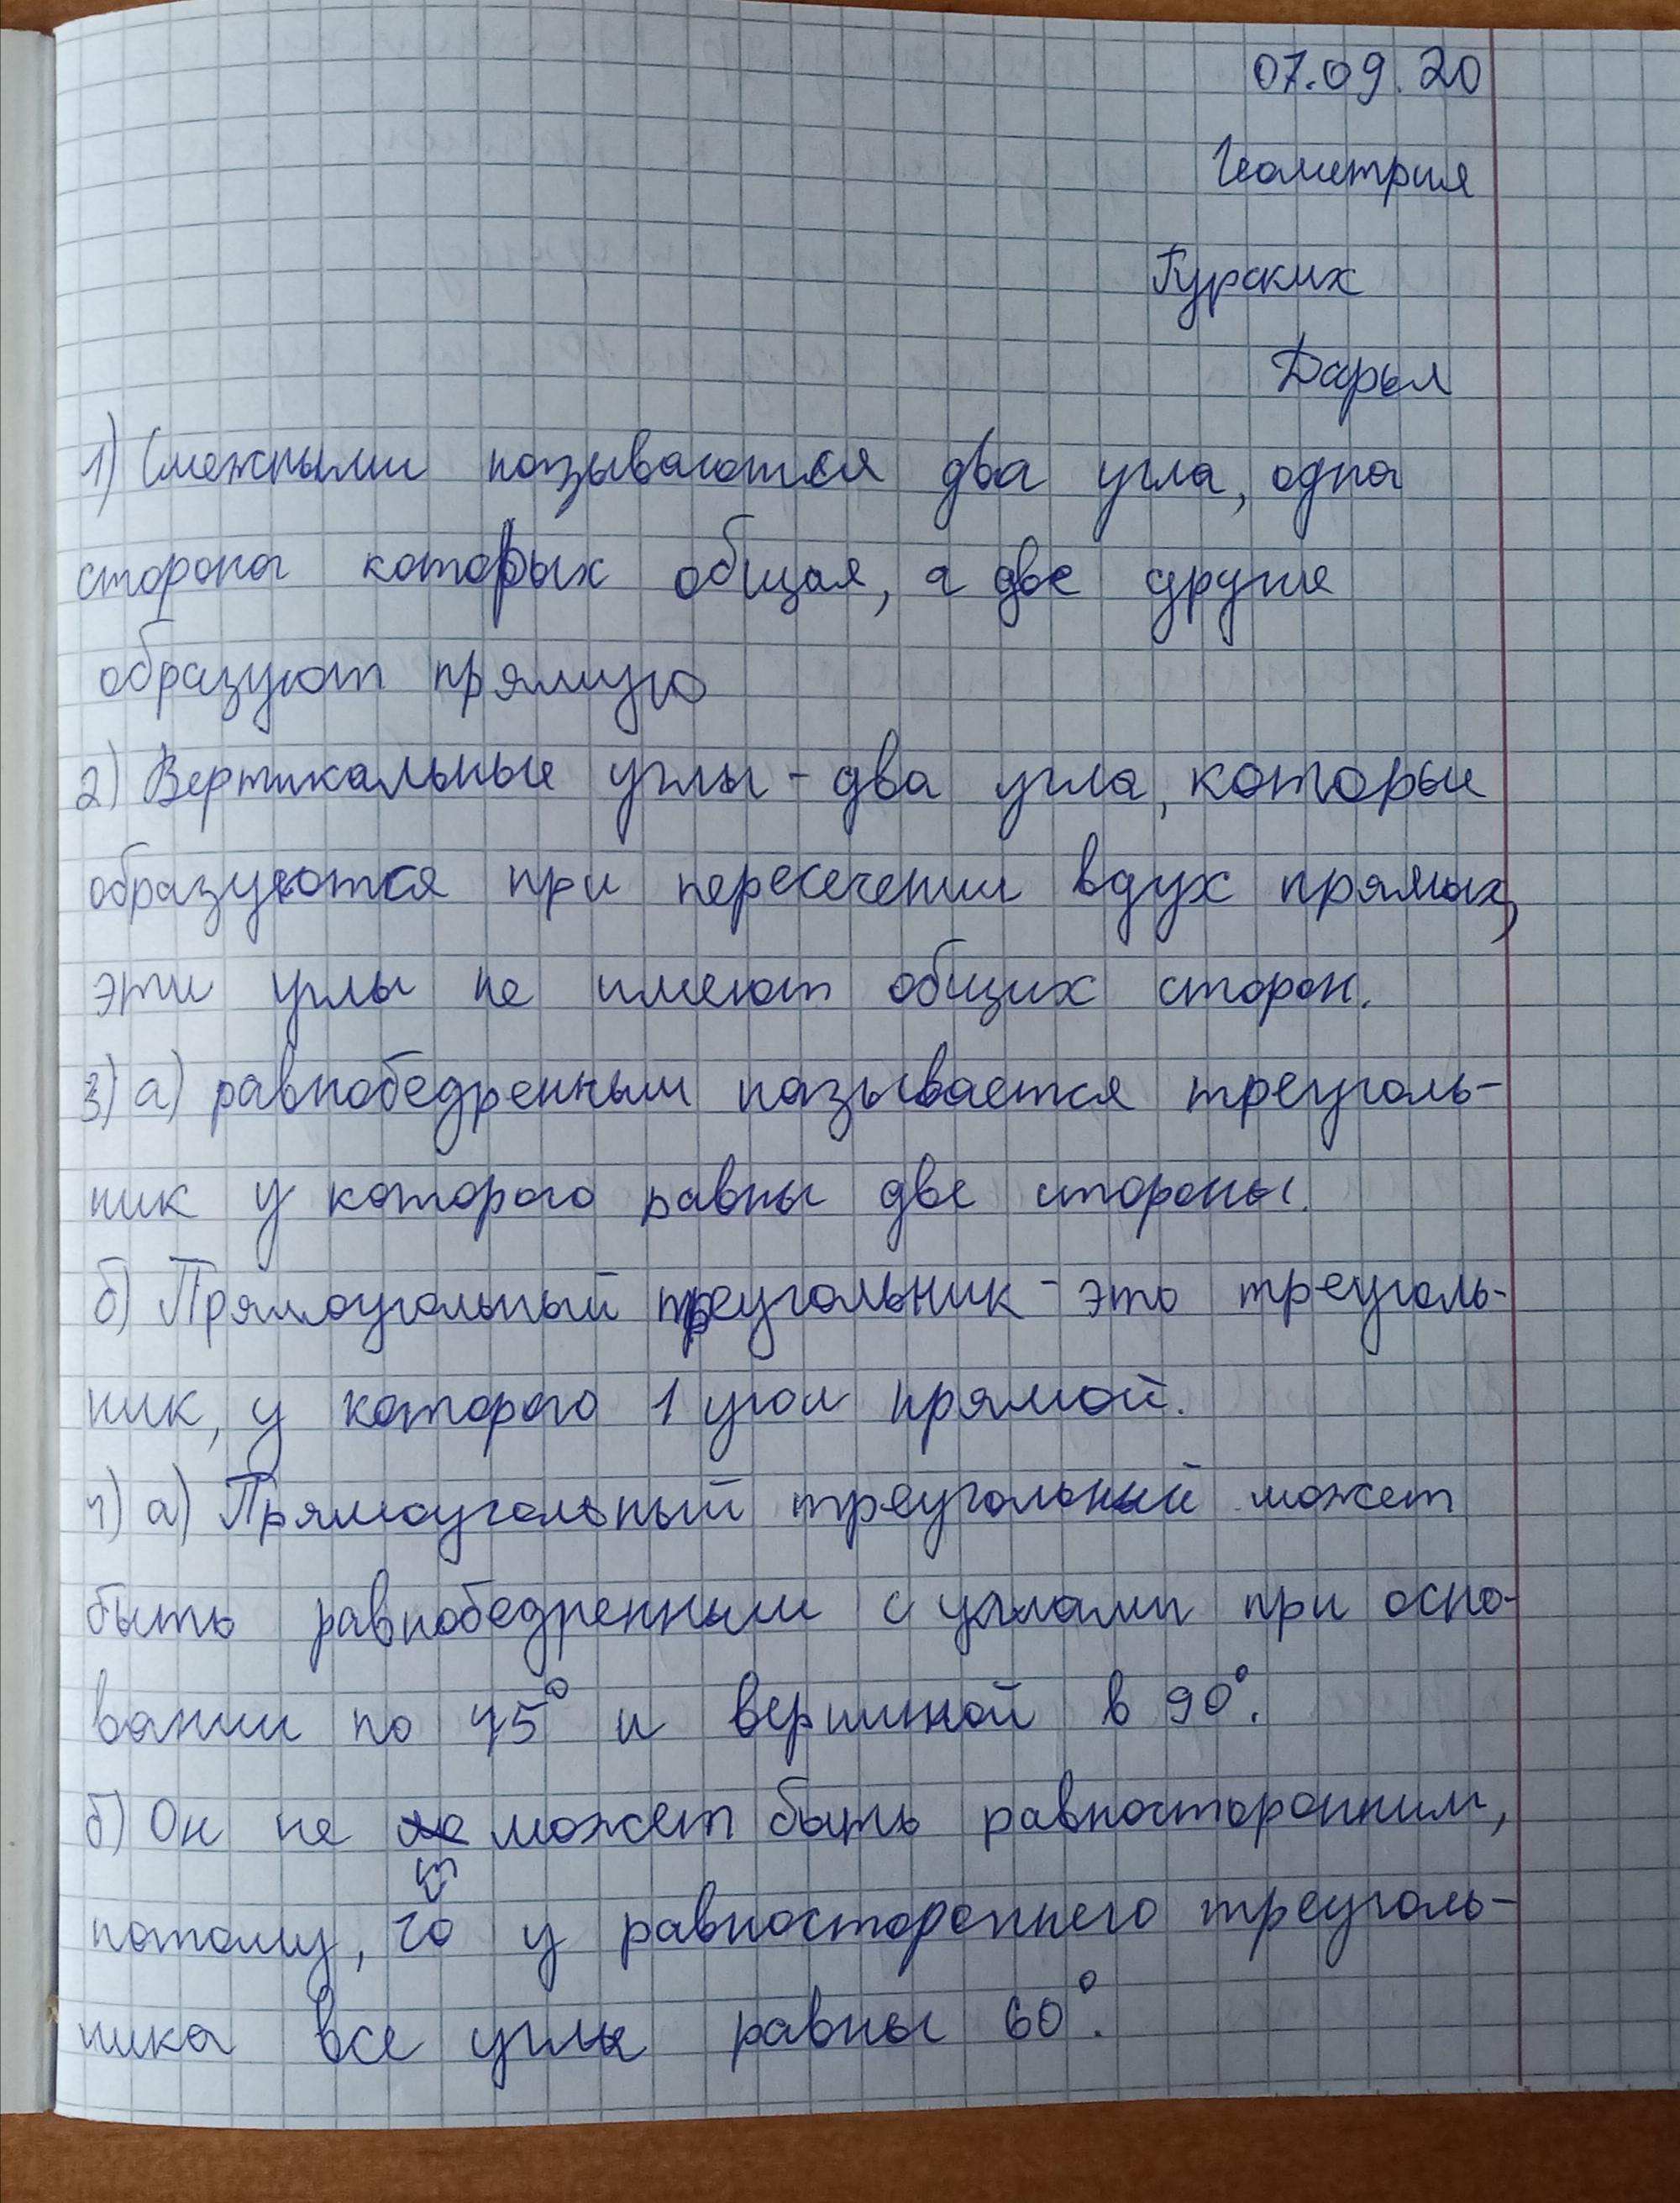 07.09.20
Геометрия
Гурских
Дарья
1) Смежными называются два угла, одна
сторона которых общая, а две другие
образуют прямую
2) Вертикальные углы - два угла, которые
образуются при пересечении вдух прямых,
эти углы не имеют общих сторон.
3) а) равнобедренным называется треуголь-
ник у которого равны две стороны.
б) Прямоугольный треугольник - это треуголь-
ник, у которого 1 угол прямой.
4) а) Прямоугольный треугольний может
быть равнобедренным с углами при осно-
вании по 45° и вершиной в 90°.
б) Он не может быть равносторонним,
потому, что у равностороннего треуголь-
ника все углы равны 60°.